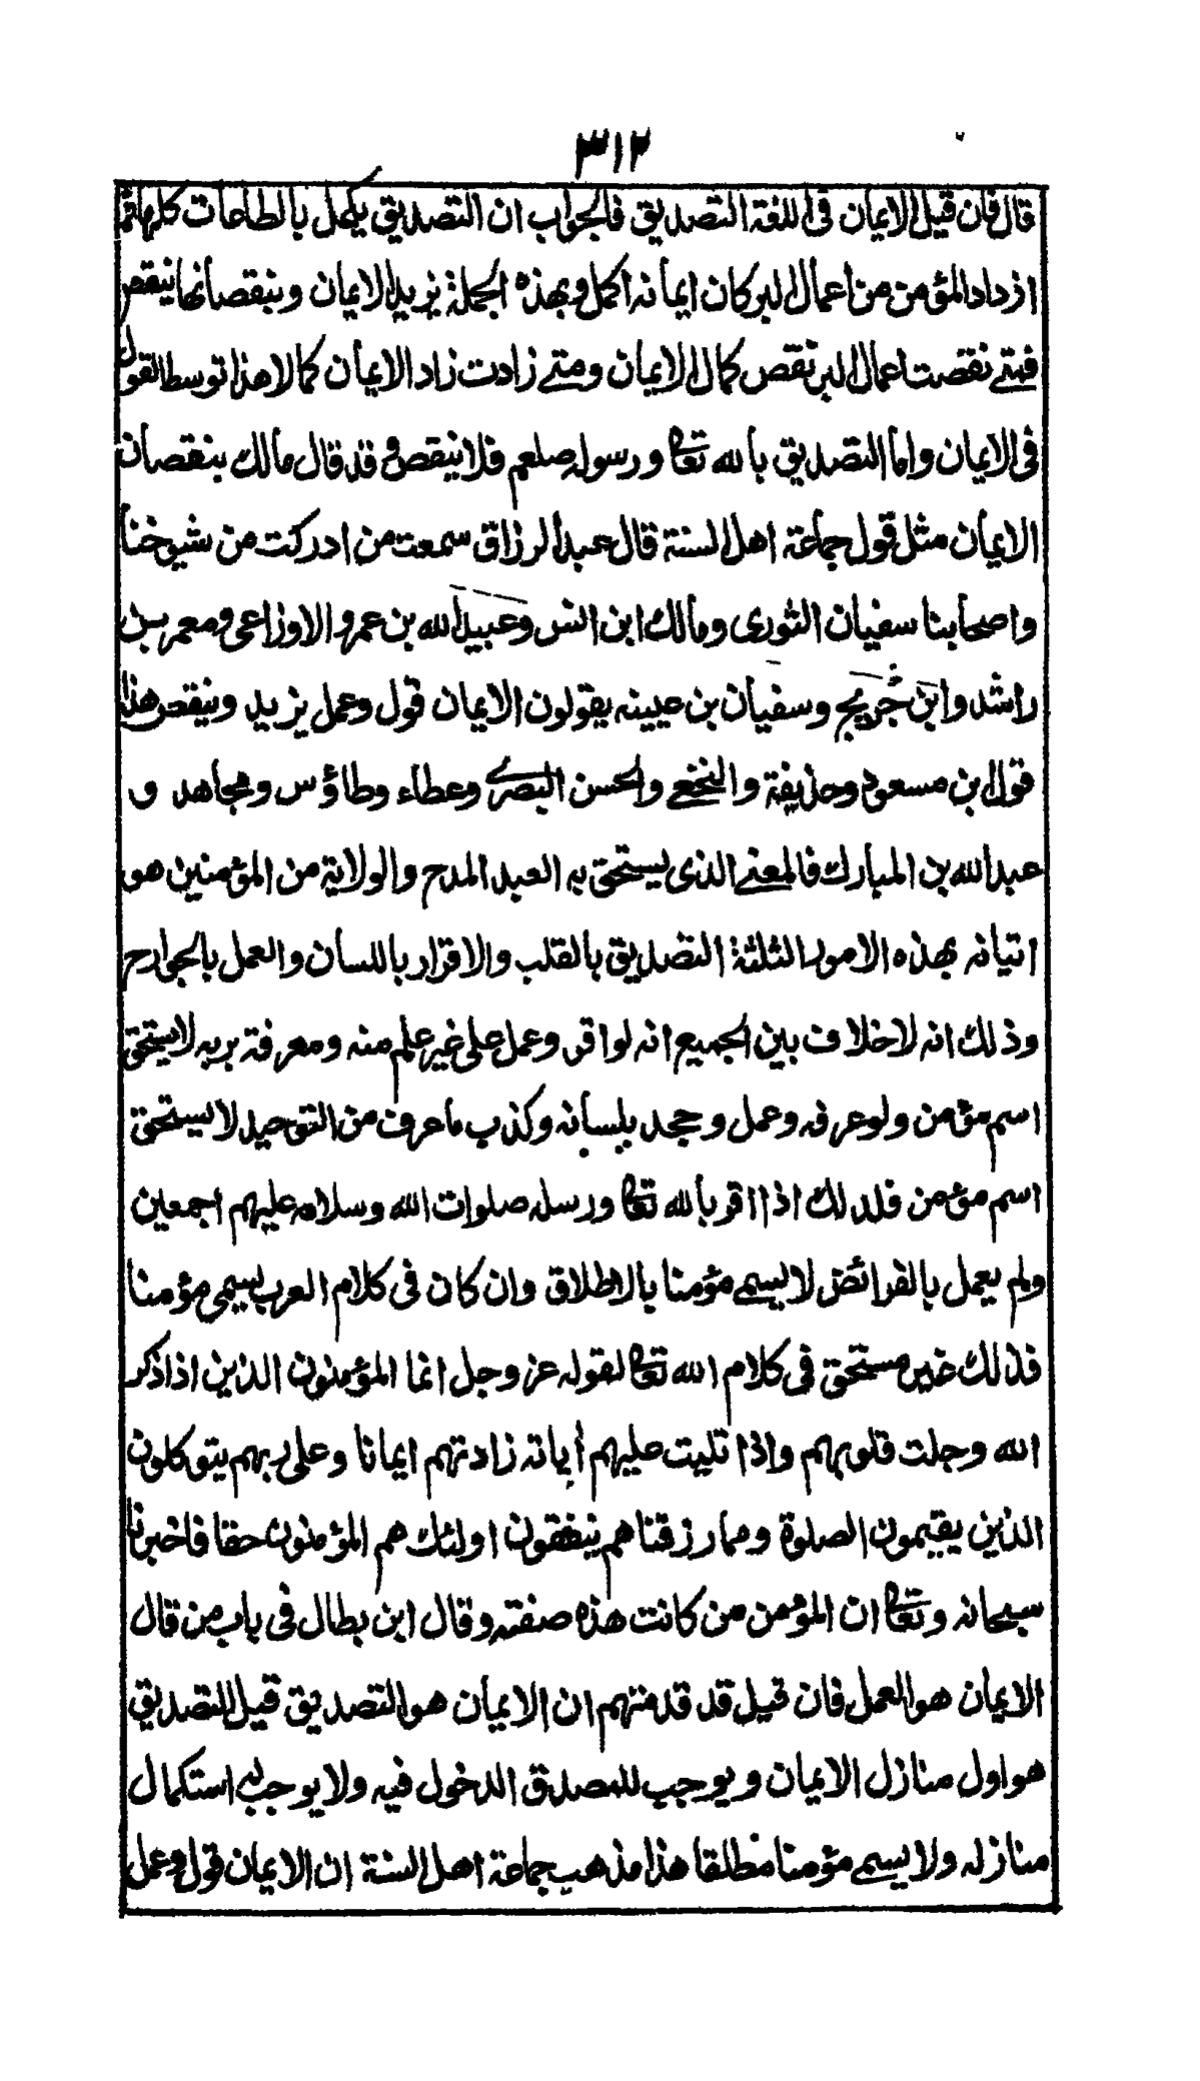 ٣١٢
قال فان قيل الايمان فى اللغة التصديق فالجواب ان التصديق يكمل بالطاعات كلها فما
ازداد المؤمن من اعمال البر كان ايمانه اكمل وبهذه الجملة يزيد الايمان وبنقصانها ينقص
فمتى نقصت اعمال البر نقص كمال الايمان ومتى زادت زاد الايمان كمالا هذا توسط القول
فى الايمان واما التصديق بالله تعالى ورسوله صلعم فلا ينقص وقد قال مالك بنقصان
الايمان مثل قول جماعة اهل السنة قال عبد الرزاق سمعت من ادركت من شيوخنا
واصحابنا سفيان الثورى ومالك ابن انس وعبيد الله بن عمر والاوزاعى ومعمر بن
راشد وابن جُريج وسفيان بن عيينه يقولون الايمان قول وعمل يزيد وينقص هذا
قول ابن مسعود وحذيفة والنخعى والحسن البصرى وعطاء وطاؤس ومجاهد و
عبد الله بن المبارك فالمعنى الذى يستحق به العبد المدح والولاية من المؤمنين هو
اتيانه بهذه الامور الثلثة التصديق بالقلب والاقرار باللسان والعمل بالجوارح
وذلك انه لا خلاف بين الجميع انه لو اقر وعمل على غير علم منه ومعرفة بربه لا يستحق
اسم مؤمن ولو عرفه وعمل وجحد بلسانه وكذب ما عرف من التوحيد لا يستحق
اسم مؤمن فلذلك اذا اقر بالله تعالى ورسله صلوات الله وسلامه عليهم اجمعين
ولم يعمل بالفرائض لا يسمى مؤمنا بالاطلاق وان كان فى كلام العرب يسمى مؤمنا
فذلك غير مستحق فى كلام الله تعالى لقوله عز وجل انما المؤمنون الذين اذا ذكر
الله وجلت قلوبهم واذا تليت عليهم أياته زادتهم ايمانا وعلى ربهم يتوكلون
الذين يقيمون الصلوة ومما رزقناهم ينفقون اولئك هم المؤمنون حقا فاخبرنا
سبحانه وتعالى ان المؤمن من كانت هذه صفته وقال ابن بطال فى باب من قال
الايمان هو العمل فان قيل قد قدمتهم ان الايمان هو التصديق قيل التصديق
هو اول منازل الايمان ويوجب للمصدق الدخول فيه ولا يوجب له استكمال
منازله ولا يسمى مؤمنا مطلقا هذا مذهب جماعة اهل السنة ان الايمان قول وعمل